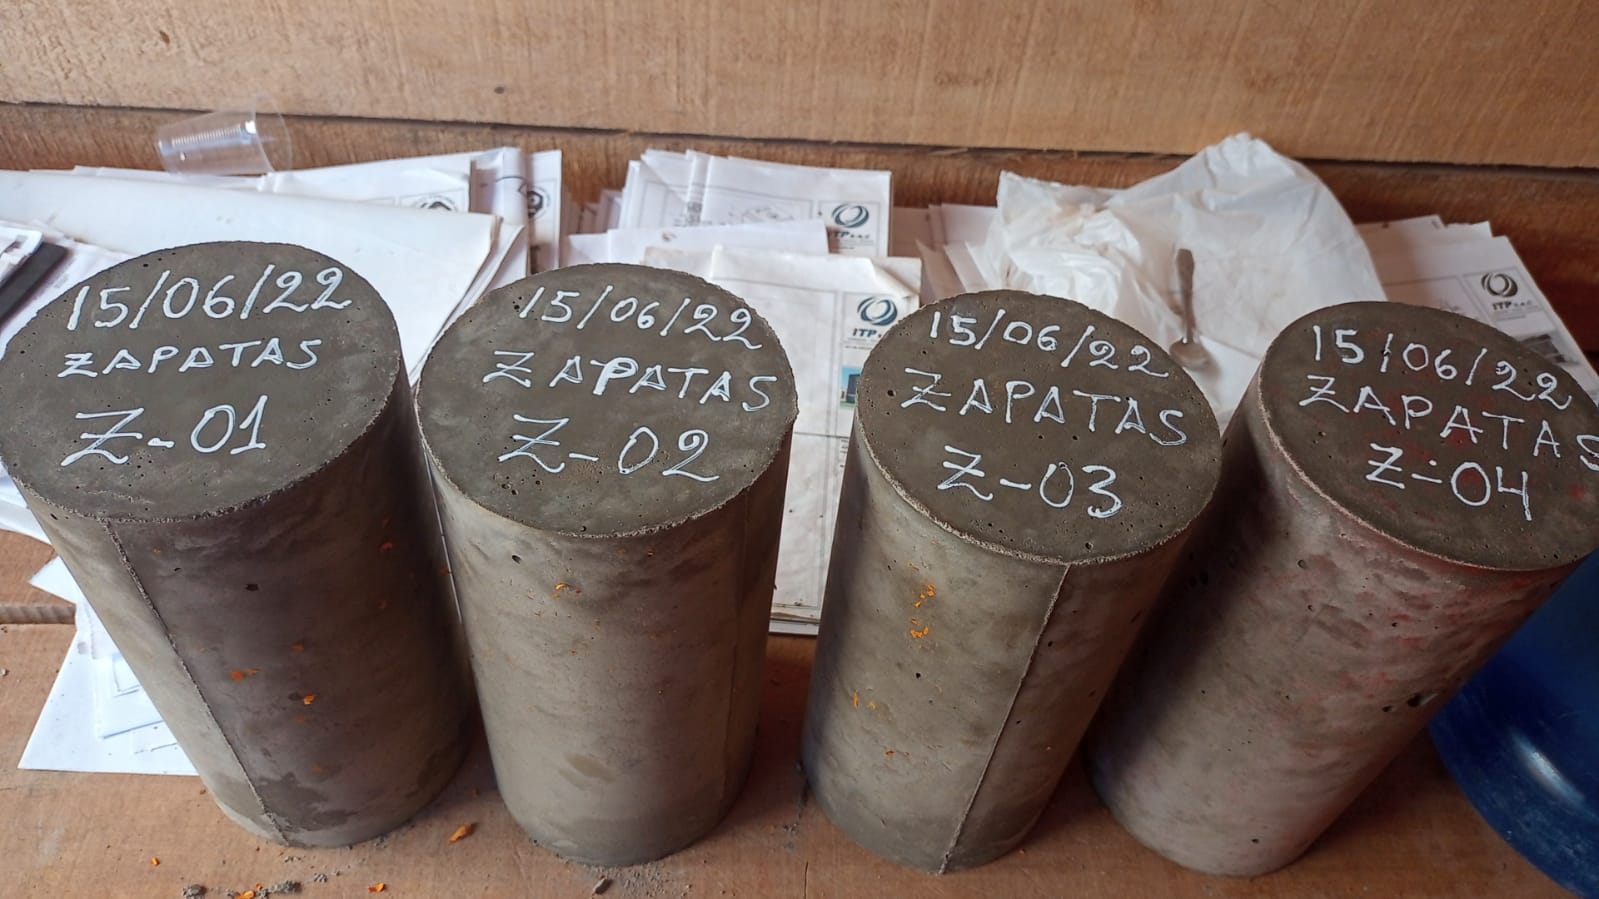 15/06/22
ZAPATAS
Z-01
15/06/22
ZAPATAS
Z-02
15/06/22
ZAPATAS
Z-03
15/06/22
ZAPATAS
Z-04
ITP S.A.C.
ITP
ITP S.A.C.